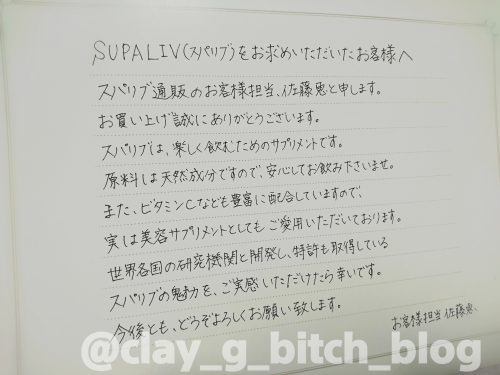 SUPALIV(スパリブ)をお求めいただいたお客様へ
スパリブ通販のお客様担当、佐藤恵と申します。
お買い上げ誠にありがとうございます。
スパリブは、楽しく飲むためのサプリメントです。
原料は天然成分ですので、安心してお飲み下さいませ。
また、ビタミンCなども豊富に配合していますので、
実は美容サプリメントとしてもご愛用いただいております。
世界各国の研究機関と開発し、特許も取得している
スパリブの魅力を、ご実感いただけたら幸いです。
今後とも、どうぞよろしくお願い致します。
お客様担当 佐藤恵、
@clay_g_bitch_blog